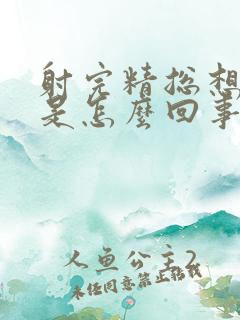 射完精总想
是怎麼回事
人鱼公主2
未经同意禁止转载